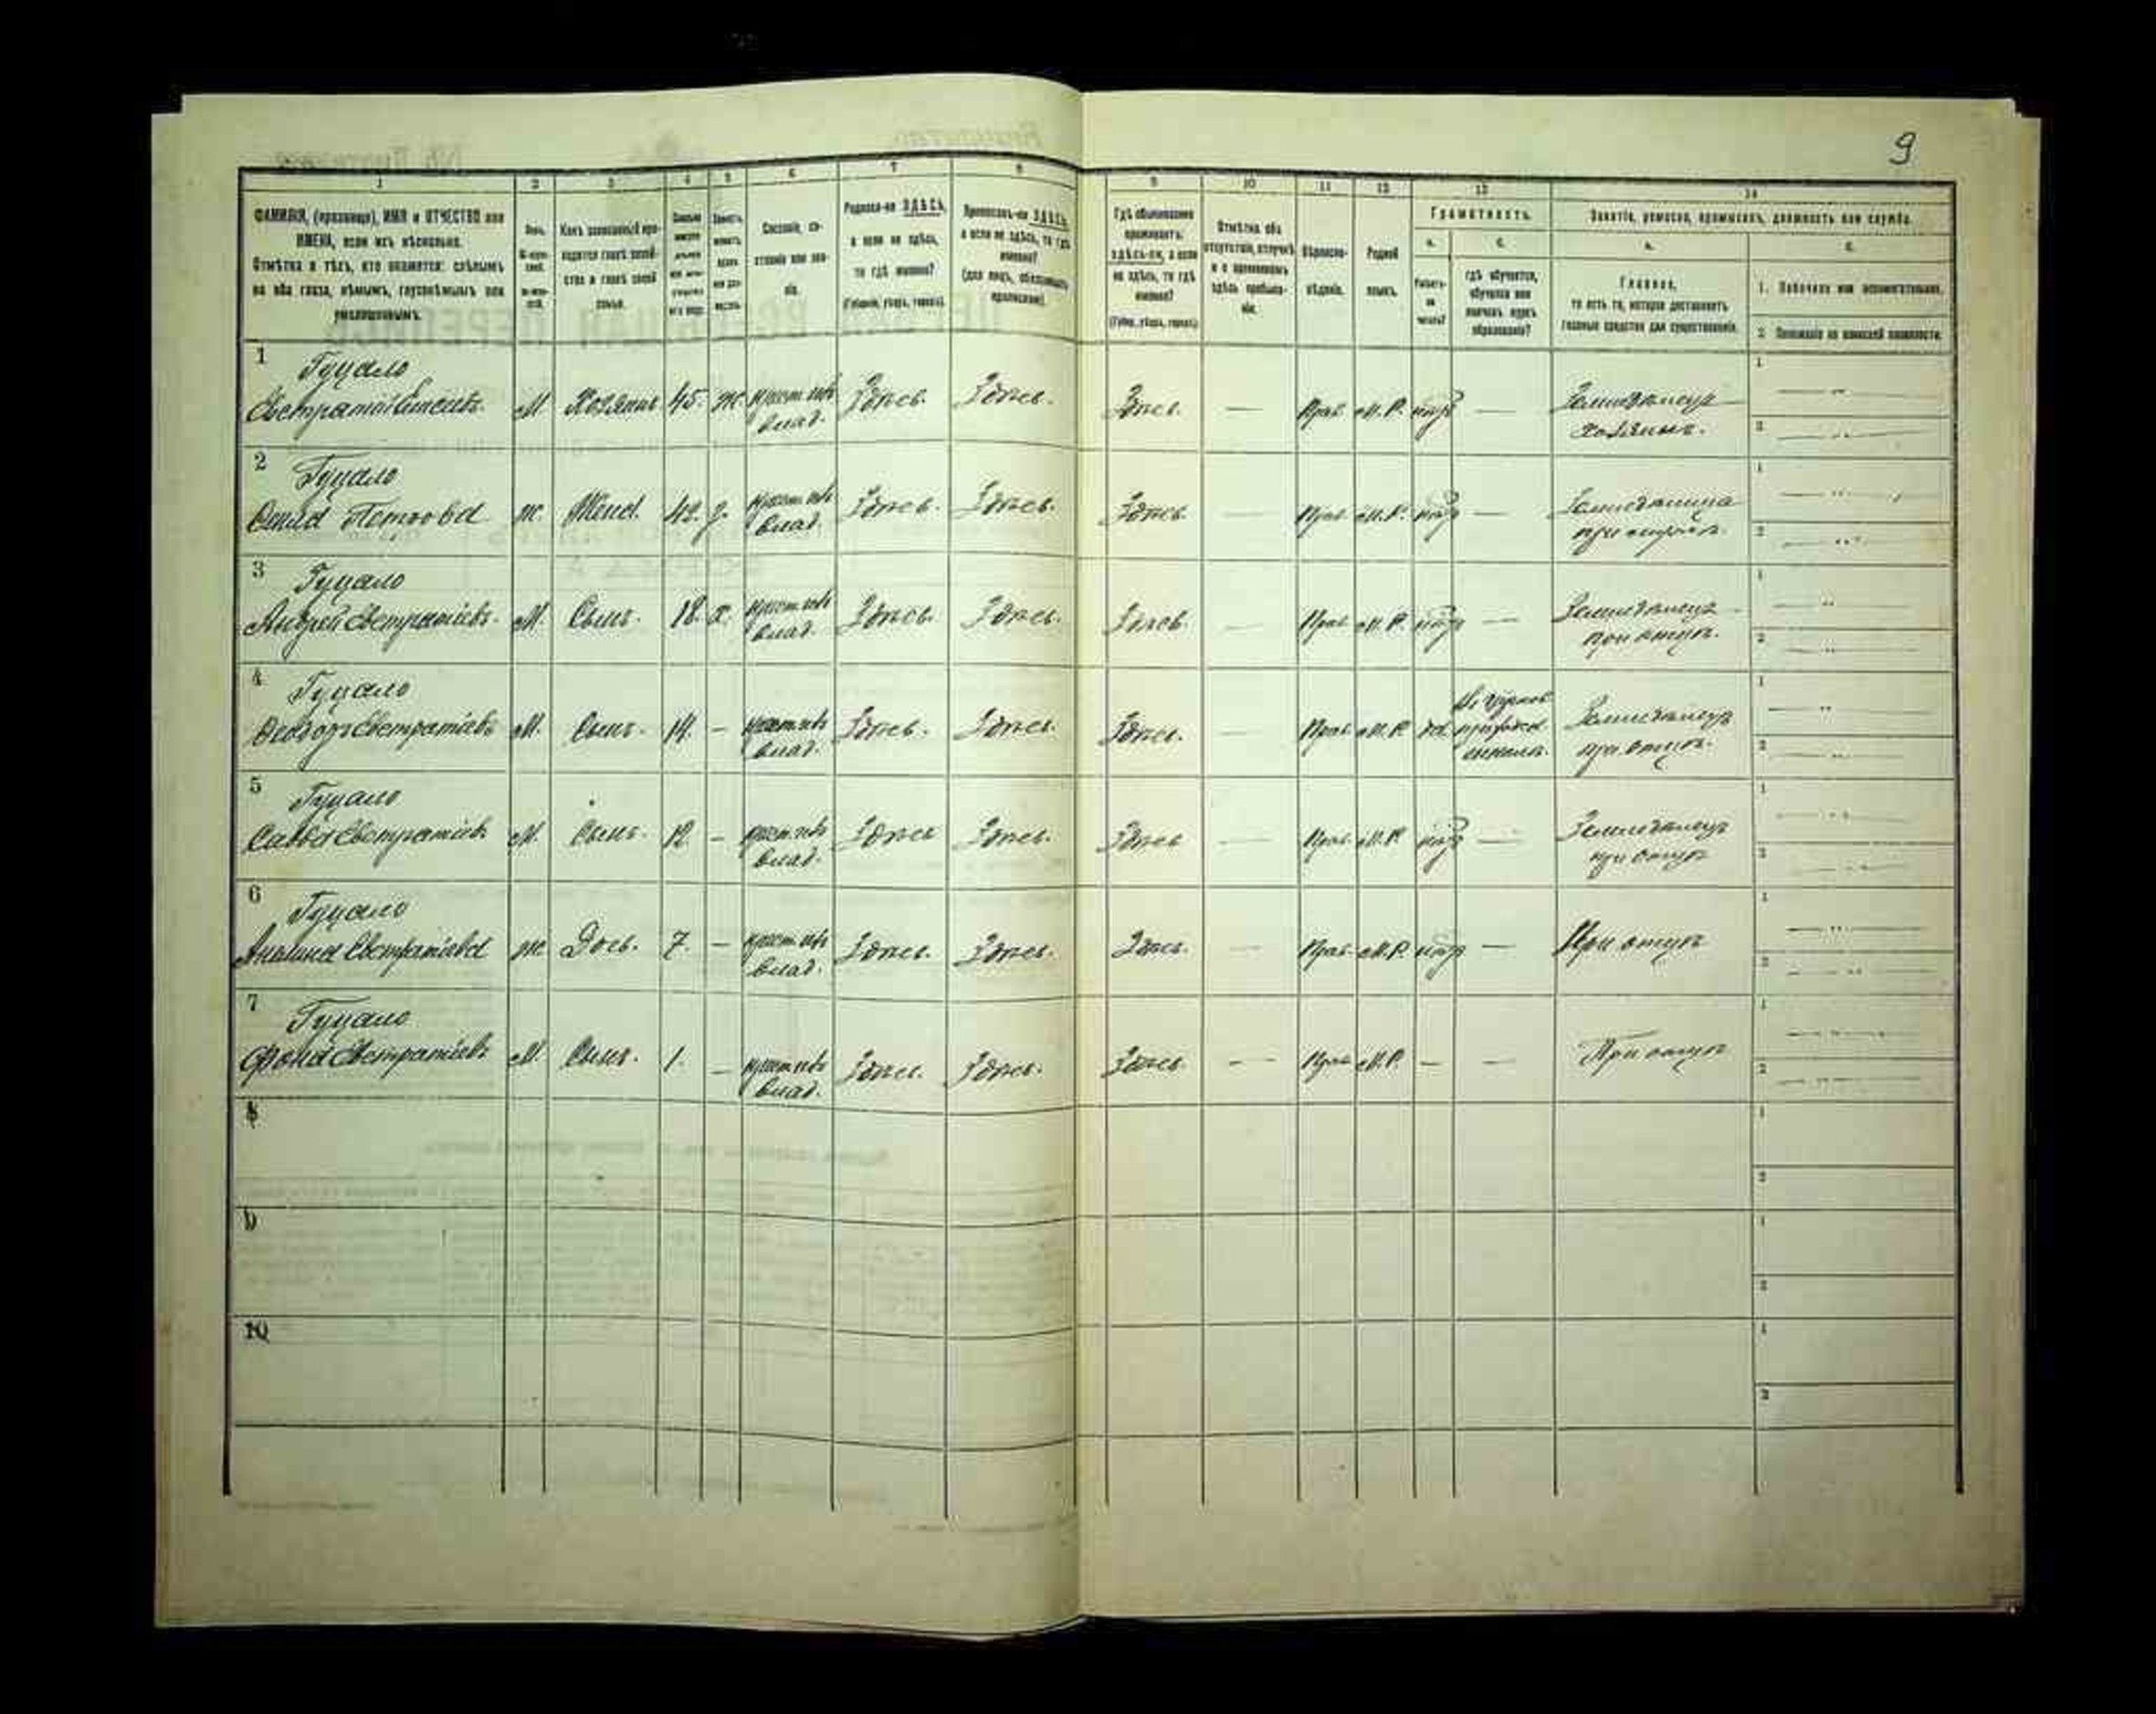 9
1 2 3 4 5 6 7 8 9 10 11 12 13 14
ФАМИЛІЯ, (прозвище), ИМЯ и ОТЧЕСТВО или
ИМЕНА, если ихъ нѣсколько.
Отмѣтка о тѣхъ, кто окажется: слѣпымъ
на оба глаза, нѣмымъ, глухонѣмымъ или
умалишеннымъ.
Полъ.
Какъ записанный при-
ходится главѣ хозяй-
ства и главѣ своей
семьи.
Сословіе, со-
стояніе или зва-
ніе.
Родился-ли ЗДѢСЬ,
а если не здѣсь,
то гдѣ именно?
(Губернія, уѣздъ, городъ).
Приписанъ-ли ЗДѢСЬ,
а если не здѣсь, то гдѣ
именно?
(для лицъ, обязанныхъ
припискою).
Гдѣ обыкновенно
проживаетъ:
здѣсь-ли, а если
не здѣсь, то гдѣ
именно?
(Губер., уѣздъ, городъ).
Отмѣтка объ
отсутствіи, отлучкѣ
и о временномъ
здѣсь пребыва-
ніи.
Вѣроиспо-
вѣданіе.
Родной
языкъ.
Грамотность.
а.
Умѣетъ-
ли
читать?
б.
гдѣ обучается,
обучался или
кончилъ курсъ
образованія?
Занятіе, ремесло, промыселъ, должность или служба.
а.
Главное,
то есть то, которое доставляетъ
главныя средства для существованія.
б.
1. Побочное или вспомогательное.
2. Положеніе по воинской повинности.
1 Гуцало
М Хозяинъ 45. ж крест. изъ влад. Здѣсь. Здѣсь. Здѣсь. — Прав. М.Р. — хозяинъ.
2 Гуцало
Петрова ж. Жена. 42. з. крест. изъ влад. Здѣсь. Здѣсь. Здѣсь — Прав. М.Р. —
3 Гуцало
Андрей Евстратіевъ. М. Сынъ. 18. х. крест. изъ влад. Здѣсь. Здѣсь. Здѣсь. — Прав. М.Р. — Земледѣлецъ
при отцѣ.
4 Гуцало
Ѳедоръ Евстратіевъ М. Сынъ. 14. — крест. изъ влад. Здѣсь. Здѣсь. Здѣсь. — Прав. М.Р. да школѣ. Земледѣлецъ
при отцѣ.
5 Гуцало
Савва Евстратіевъ М. Сынъ. 12. — крест. изъ влад. Здѣсь Здѣсь. Здѣсь — Прав. М.Р. — Земледѣлецъ
при отцѣ
6 Гуцало
Евстратіева ж. Дочь. 7. — крест. изъ влад. Здѣсь. Здѣсь. Здѣсь. — Прав. М.Р. — При отцѣ
7 Гуцало
Евстратіевъ М. Сынъ. 1. — крест. изъ влад. Здѣсь. Здѣсь. Здѣсь. — Прав. М.Р. — — При отцѣ
8
9
10